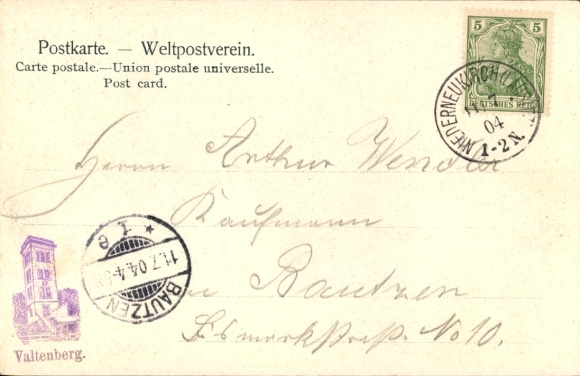 Postkarte. — Weltpostverein.
Carte postale.—Union postale universelle.
Post card.
5 5
DEUTSCHES REICH
NIEDERNEUKIRCH
11 7
04
1-2N.
Herrn Arthur Wendler
Kaufmann
in Bautzen
Bismarkstraße No 10.
* 1 e
11.7.04.4-5
BAUTZEN
Valtenberg.